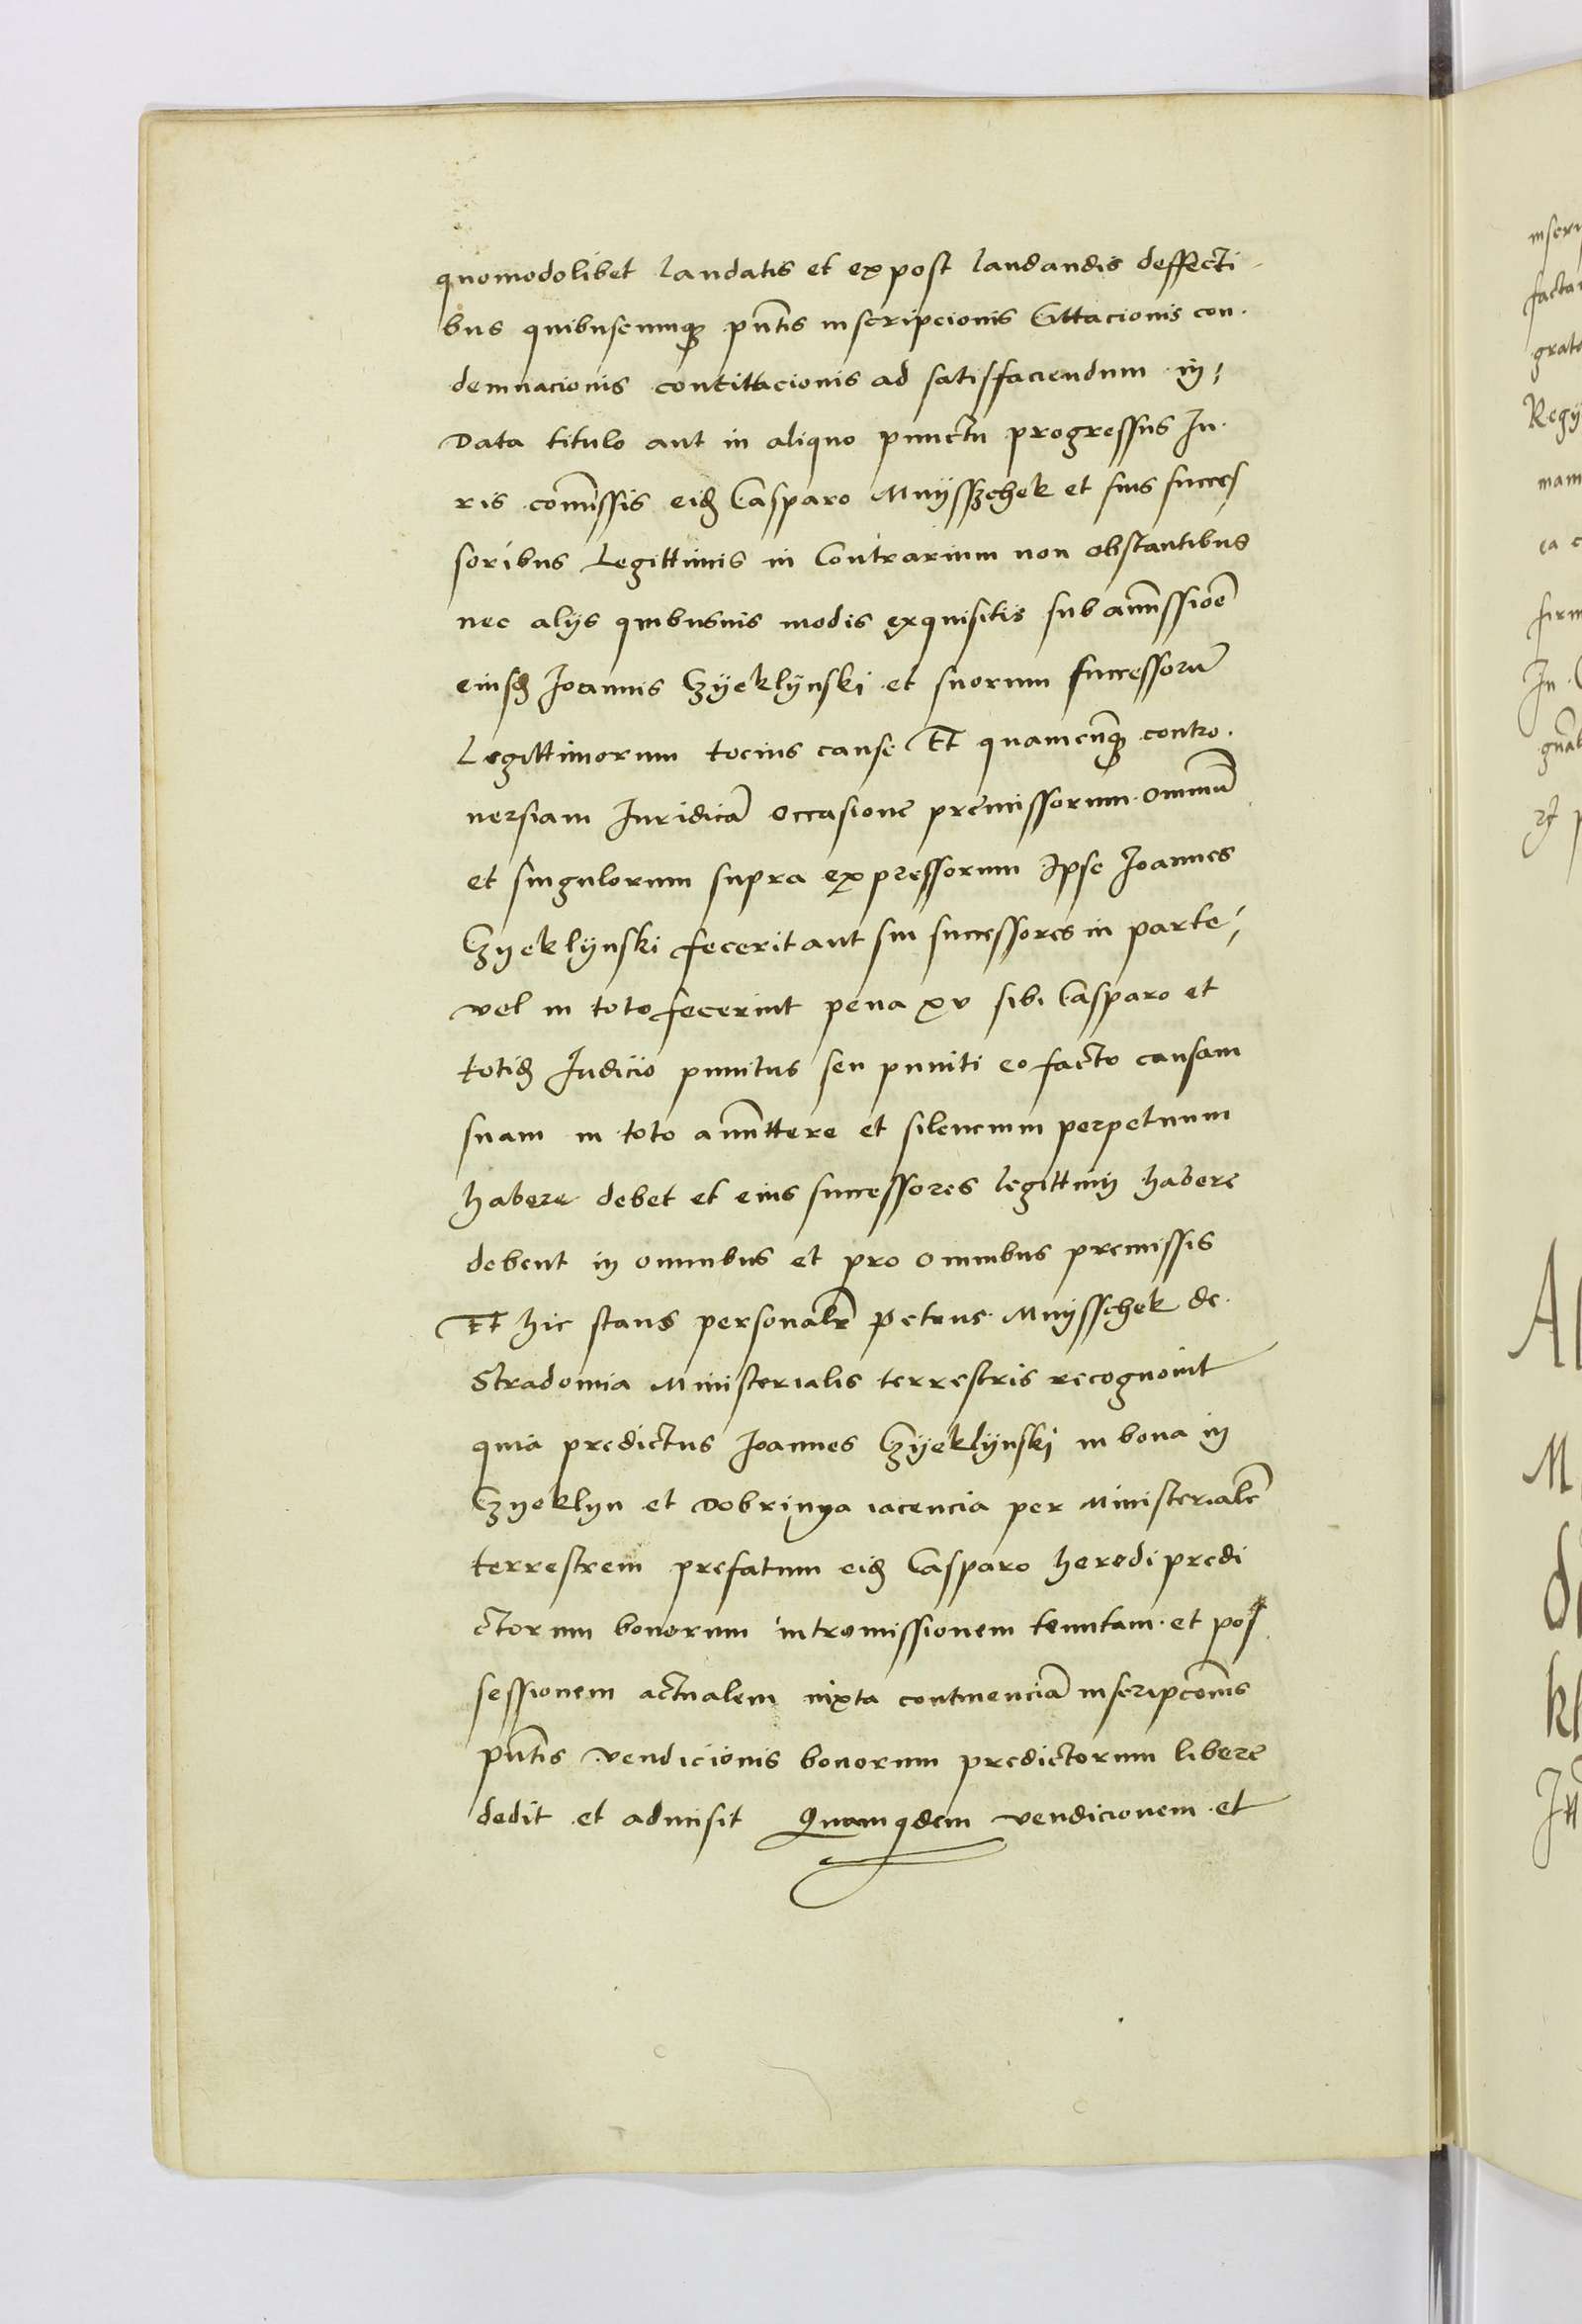 quomodolibet laudatis et ex post laudandis deffecti
bus quibuscunq pntis inscripcionis Cittacionis con
demnacionis concittacionis ad satisfaciendum in
Data titulo aut in aliquo punctu progressus Ju
ris comissis eid Casparo Mnyszchek et suis succes
soribus Legittimis in Contrarium non obstantibus
nec alijs quibusuis modis exquisitis sub amissioe
eiusd Joannis Czyeklynski et suorum successoru
Legittimorum tocius cause Et quamcunq contro
uersiam Juridica occasione premissorum omniu
et singulorum supra expressorum Ipse Joannes
Czyeklynski fecerit aut sui successores in parte
vel in toto fecerint pena xv sibi Casparo et
totid Judicio punitus seu puniti eo facto causam
suam in toto amittere et silencium perpetuum
habere debet et eius successores legittimi habere
debent in omnibus et pro omnibus premissis
Et hic stans personalr Petrus Mnysschek de
Stradomia Ministerialis terrestris recognouit
quia predictus Joannes Czyeklynski in bona in
Czyeklyn et Dobrinya iacencia per Ministeriale
terrestrem prefatum eid Casparo heredi predi
ctorum bonorum intromissionem tenutam et pos
sessionem actualem iuxta continencia inscripconis
pntis vendicionis bonorum predictorum libere
dedit et admisit Quamqdem vendicionem et